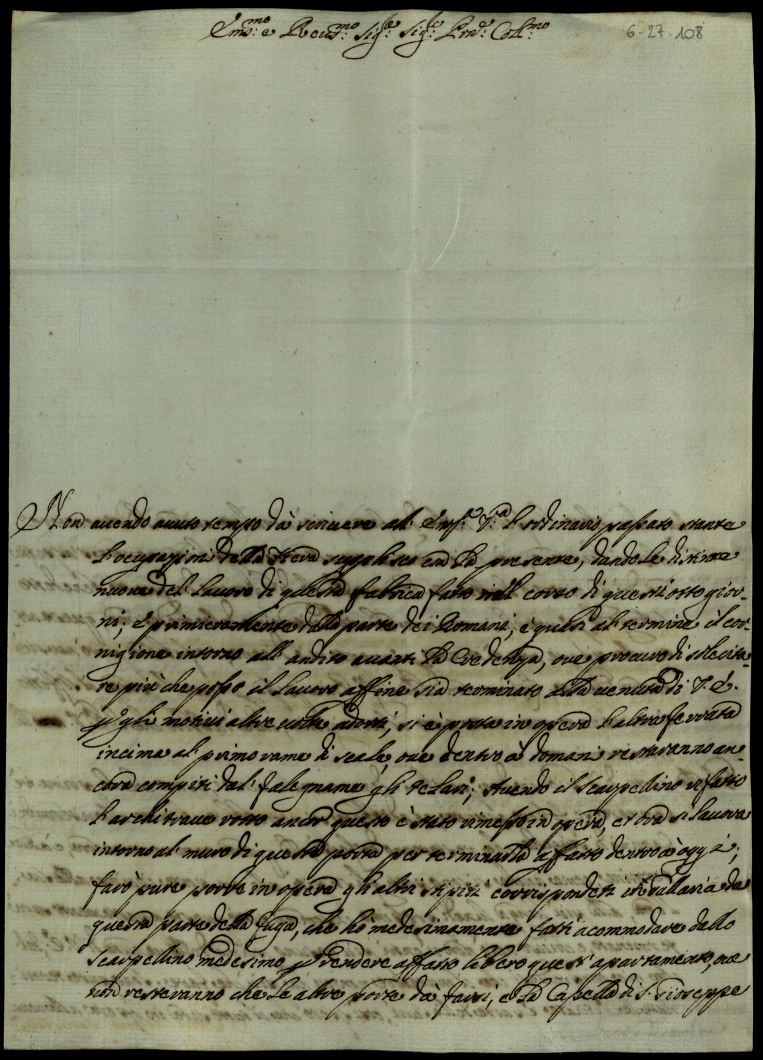 Em̃o: e Reũmo Sig.re Sig.re Prõn: Col.mo
6-27-108
Non auendo auuto tempo dà scriuere all' Em.za V.a l'ordinario passato stante
l'ocupazioni della supplisco con la presente, dandole distinte
nuoue del lauoro di questa fabrica fatto nel corso di questi otto gior-
ni; è primieramente dalla parte dei Romani, è quasi al termine il cor-
nigione intorno all' andito auanti la Credenza, oue procuro di solecita-
re più che posso il lauoro affine sia terminato alla uenuta di V. E.
p gli motiui altre uolte adotti, si è posta in opera l'altra ferrata
incima al primo ramo di scale, oue dentro à domani restaranno an-
cora compiti dal falegname gli telari; Auendo il scarpellino rifatto
l'architraue rotto ancor questo è stato rimesso in opera, et ora si lauora
intorno al muro di questa porta per terminarla affatto dentro à oggi;
farò pure porre in opera gli altri stipiti corrispondeti da
questa parte della fuga, che hò medesimamente fatti acommodare dallo
scarpellino medesimo p rendere affatto libero quest' apartamento, oue
non resteranno che le altre porte dà farsi, e la Capella di S. Gioseppe